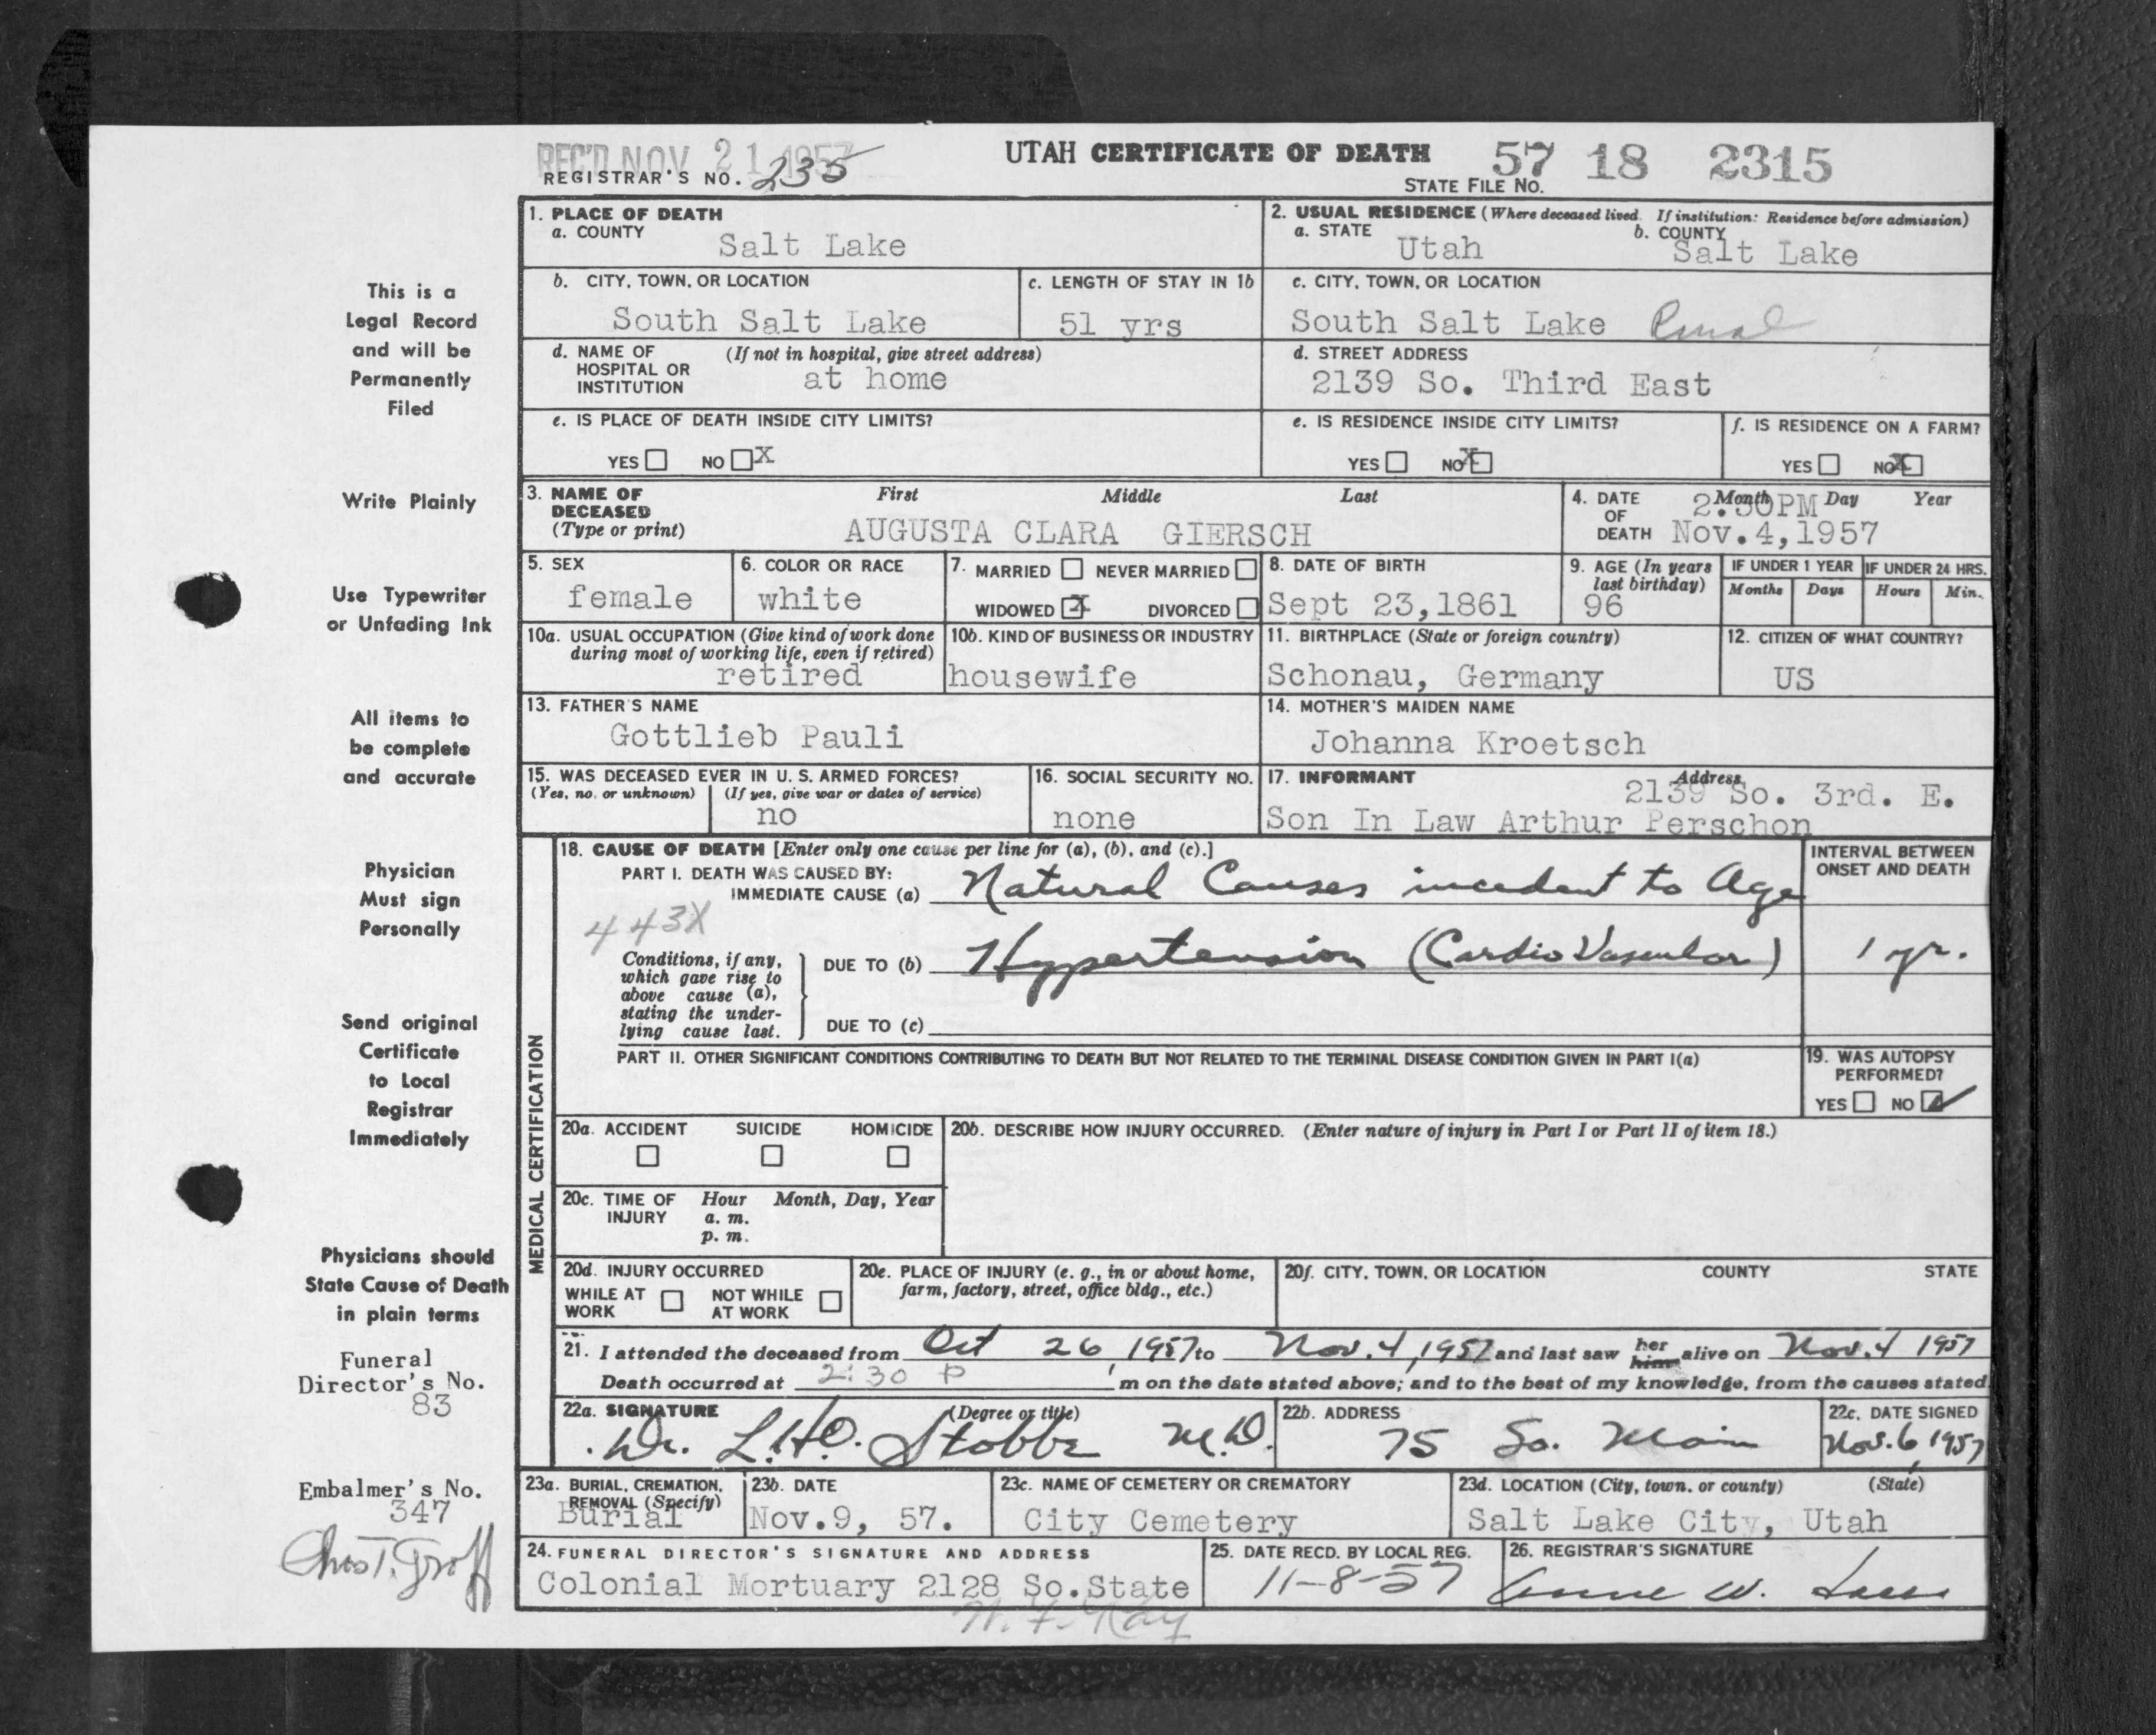 REC'D NOV 21 1957
REGISTRAR'S NO. 235
UTAH CERTIFICATE OF DEATH
57 18 2315
STATE FILE NO.
1. PLACE OF DEATH
a. COUNTY
Salt Lake
2. USUAL RESIDENCE (Where deceased lived. If institution: Residence before admission)
a. STATE
Utah
b. COUNTY
Salt Lake
b. CITY, TOWN, OR LOCATION
South Salt Lake
c. LENGTH OF STAY IN 1b
51 yrs
c. CITY, TOWN, OR LOCATION
South Salt Lake Rural
d. NAME OF HOSPITAL OR INSTITUTION
(If not in hospital, give street address)
at home
d. STREET ADDRESS
2139 So. Third East
e. IS PLACE OF DEATH INSIDE CITY LIMITS?
YES NO X
e. IS RESIDENCE INSIDE CITY LIMITS?
YES NO X
f. IS RESIDENCE ON A FARM?
YES NO X
3. NAME OF DECEASED (Type or print)
First Middle Last
AUGUSTA CLARA GIERSCH
4. DATE OF DEATH
Month Day Year
2:30PM
Nov.4,1957
5. SEX
female
6. COLOR OR RACE
white
7. MARRIED NEVER MARRIED
WIDOWED X DIVORCED
8. DATE OF BIRTH
Sept 23,1861
9. AGE (In years last birthday)
96
IF UNDER 1 YEAR
Months Days
IF UNDER 24 HRS.
Hours Min.
10a. USUAL OCCUPATION (Give kind of work done during most of working life, even if retired)
retired
10b. KIND OF BUSINESS OR INDUSTRY
housewife
11. BIRTHPLACE (State or foreign country)
Schonau, Germany
12. CITIZEN OF WHAT COUNTRY?
US
13. FATHER'S NAME
Gottlieb Pauli
14. MOTHER'S MAIDEN NAME
Johanna Kroetsch
15. WAS DECEASED EVER IN U. S. ARMED FORCES?
(Yes, no, or unknown) (If yes, give war or dates of service)
no
16. SOCIAL SECURITY NO.
none
17. INFORMANT Address
2139 So. 3rd. E.
Son In Law Arthur Perschon
MEDICAL CERTIFICATION
18. CAUSE OF DEATH [Enter only one cause per line for (a), (b), and (c).]
PART I. DEATH WAS CAUSED BY:
IMMEDIATE CAUSE (a) Natural Causes incedent to Age
INTERVAL BETWEEN ONSET AND DEATH
443X
Conditions, if any, which gave rise to above cause (a), stating the underlying cause last.
DUE TO (b) Hypertension (Cardio Vascular) 1 yr.
DUE TO (c)
PART II. OTHER SIGNIFICANT CONDITIONS CONTRIBUTING TO DEATH BUT NOT RELATED TO THE TERMINAL DISEASE CONDITION GIVEN IN PART I(a)
19. WAS AUTOPSY PERFORMED?
YES NO
20a. ACCIDENT SUICIDE HOMICIDE
20b. DESCRIBE HOW INJURY OCCURRED. (Enter nature of injury in Part I or Part II of item 18.)
20c. TIME OF INJURY
Hour Month, Day, Year
a. m.
p. m.
20d. INJURY OCCURRED
WHILE AT WORK NOT WHILE AT WORK
20e. PLACE OF INJURY (e. g., in or about home, farm, factory, street, office bldg., etc.)
20f. CITY, TOWN, OR LOCATION COUNTY STATE
21. I attended the deceased from Oct 26, 1957 to Nov. 4, 1957 and last saw her him alive on Nov. 4 1957
Death occurred at 2:30 P m on the date stated above; and to the best of my knowledge, from the causes stated
22a. SIGNATURE (Degree or title)
Dr. L.H.O. Stobbe M.D.
22b. ADDRESS
75 So. Main
22c. DATE SIGNED
Nov. 6, 1957
23a. BURIAL, CREMATION, REMOVAL (Specify)
Burial
23b. DATE
Nov.9, 57.
23c. NAME OF CEMETERY OR CREMATORY
City Cemetery
23d. LOCATION (City, town, or county) (State)
Salt Lake City, Utah
24. FUNERAL DIRECTOR'S SIGNATURE AND ADDRESS
Colonial Mortuary 2128 So.State
25. DATE RECD. BY LOCAL REG.
11-8-57
26. REGISTRAR'S SIGNATURE
This is a
Legal Record
and will be
Permanently
Filed
Write Plainly
Use Typewriter
or Unfading Ink
All items to
be complete
and accurate
Physician
Must sign
Personally
Send original
Certificate
to Local
Registrar
Immediately
Physicians should
State Cause of Death
in plain terms
Funeral
Director's No.
83
Embalmer's No.
347
Chas T. Groff